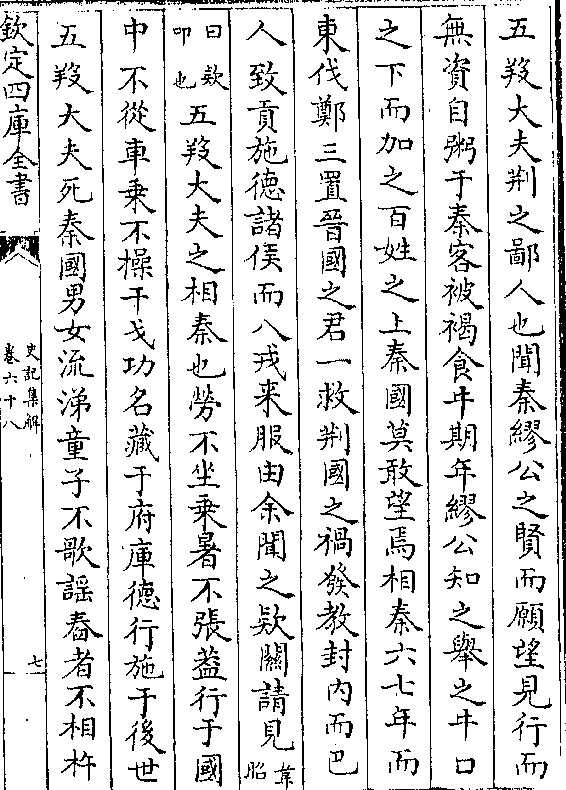 五羖大夫荆之鄙人也聞秦繆公之賢而願望見行而
無資自粥于秦客被褐食牛期年繆公知之舉之牛口
之下而加之百姓之上秦國莫敢望焉相秦六七年而
東伐鄭三置晉國之君一救荆國之禍發教封内而巴
人致貢施德諸侯而八戎来服由余聞之欵關請見韋昭
曰欵叩也五羖大夫之相秦也勞不坐乗暑不張葢行于國
中不從車乗不操干戈功名藏于府庫德行施于後世
五羖大夫死秦國男女流涕童子不歌謡舂者不相杵
欽定四庫全書
史記集解
卷六十八
七